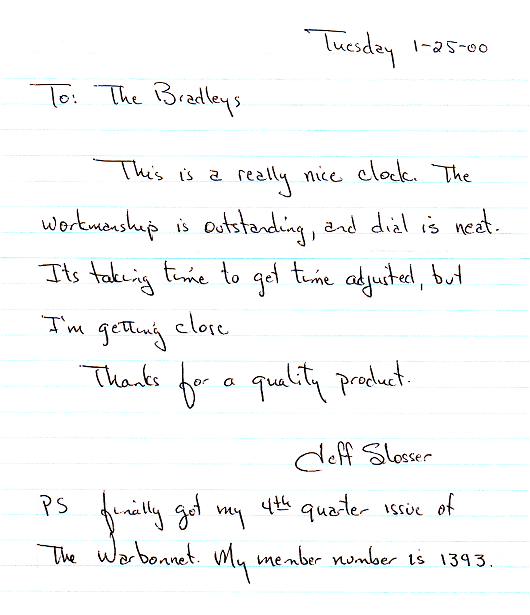 Tuesday 1-25-00
To: The Bradleys
This is a really nice clock. The
workmanship is outstanding, and dial is neat.
Its taking time to get time adjusted, but
I'm getting close
Thanks for a quality product.
Jeff Slosser
PS finally got my 4th quarter issue of
The Warbonnet. My member number is 1393.